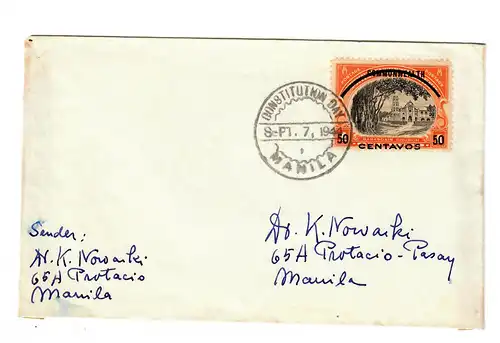 CONSTITUTION DAY
SEPT. 7, 194
MANILA
COMMONWEALTH
50 50
CENTAVOS
Dr. K. Nowaiki
65A Protacio-Pasay
Manila
Sender:
Dr. K. Nowaiki
65A Protacio
Manila